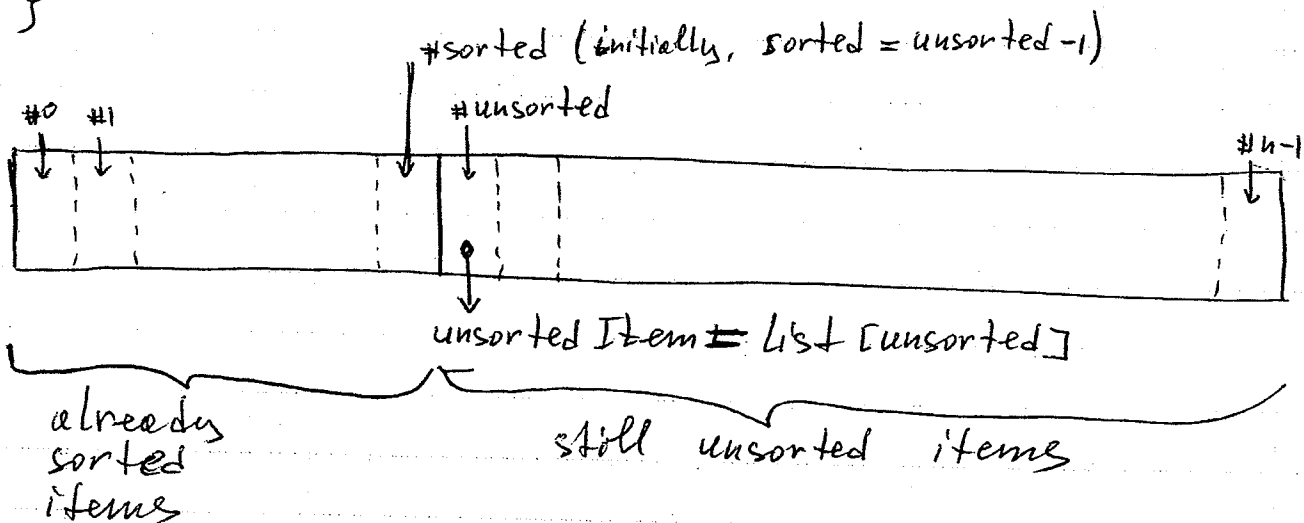 }
#sorted (initially, sorted = unsorted-1)
#0 #1 #unsorted #n-1
unsortedItem = List [unsorted]
already
sorted
items
still unsorted items